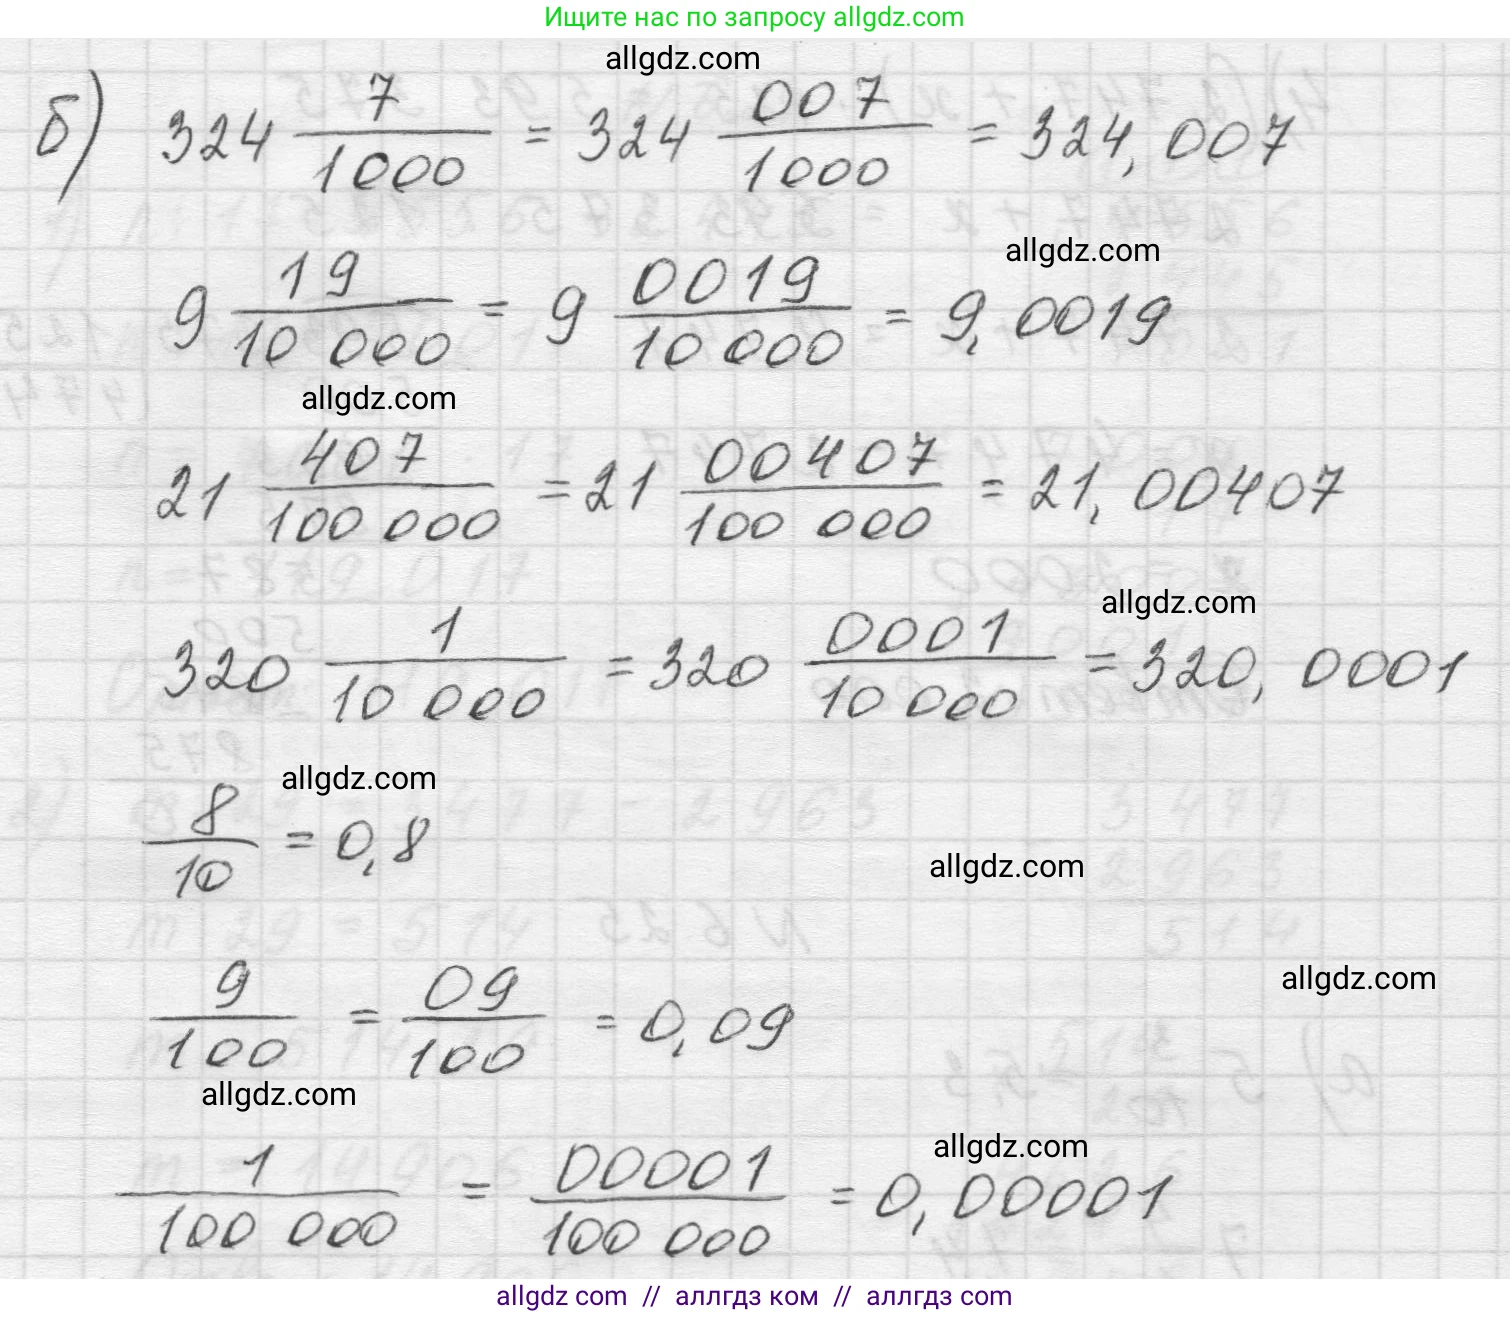 Ищите нас по запросу allgdz.com
allgdz.com
б) 324 7/1000 = 324 007/1000 = 324,007
allgdz.com
9 19/10 000 = 9 0019/10 000 = 9,0019
allgdz.com
21 407/100 000 = 21 00407/100 000 = 21,00407
allgdz.com
320 1/10 000 = 320 0001/10 000 = 320,0001
allgdz.com
8/10 = 0,8
allgdz.com
allgdz.com
9/100 = 09/100 = 0,09
allgdz.com
allgdz.com
1/100 000 = 00001/100 000 = 0,00001
allgdz com // аллгдз ком // аллгдз com